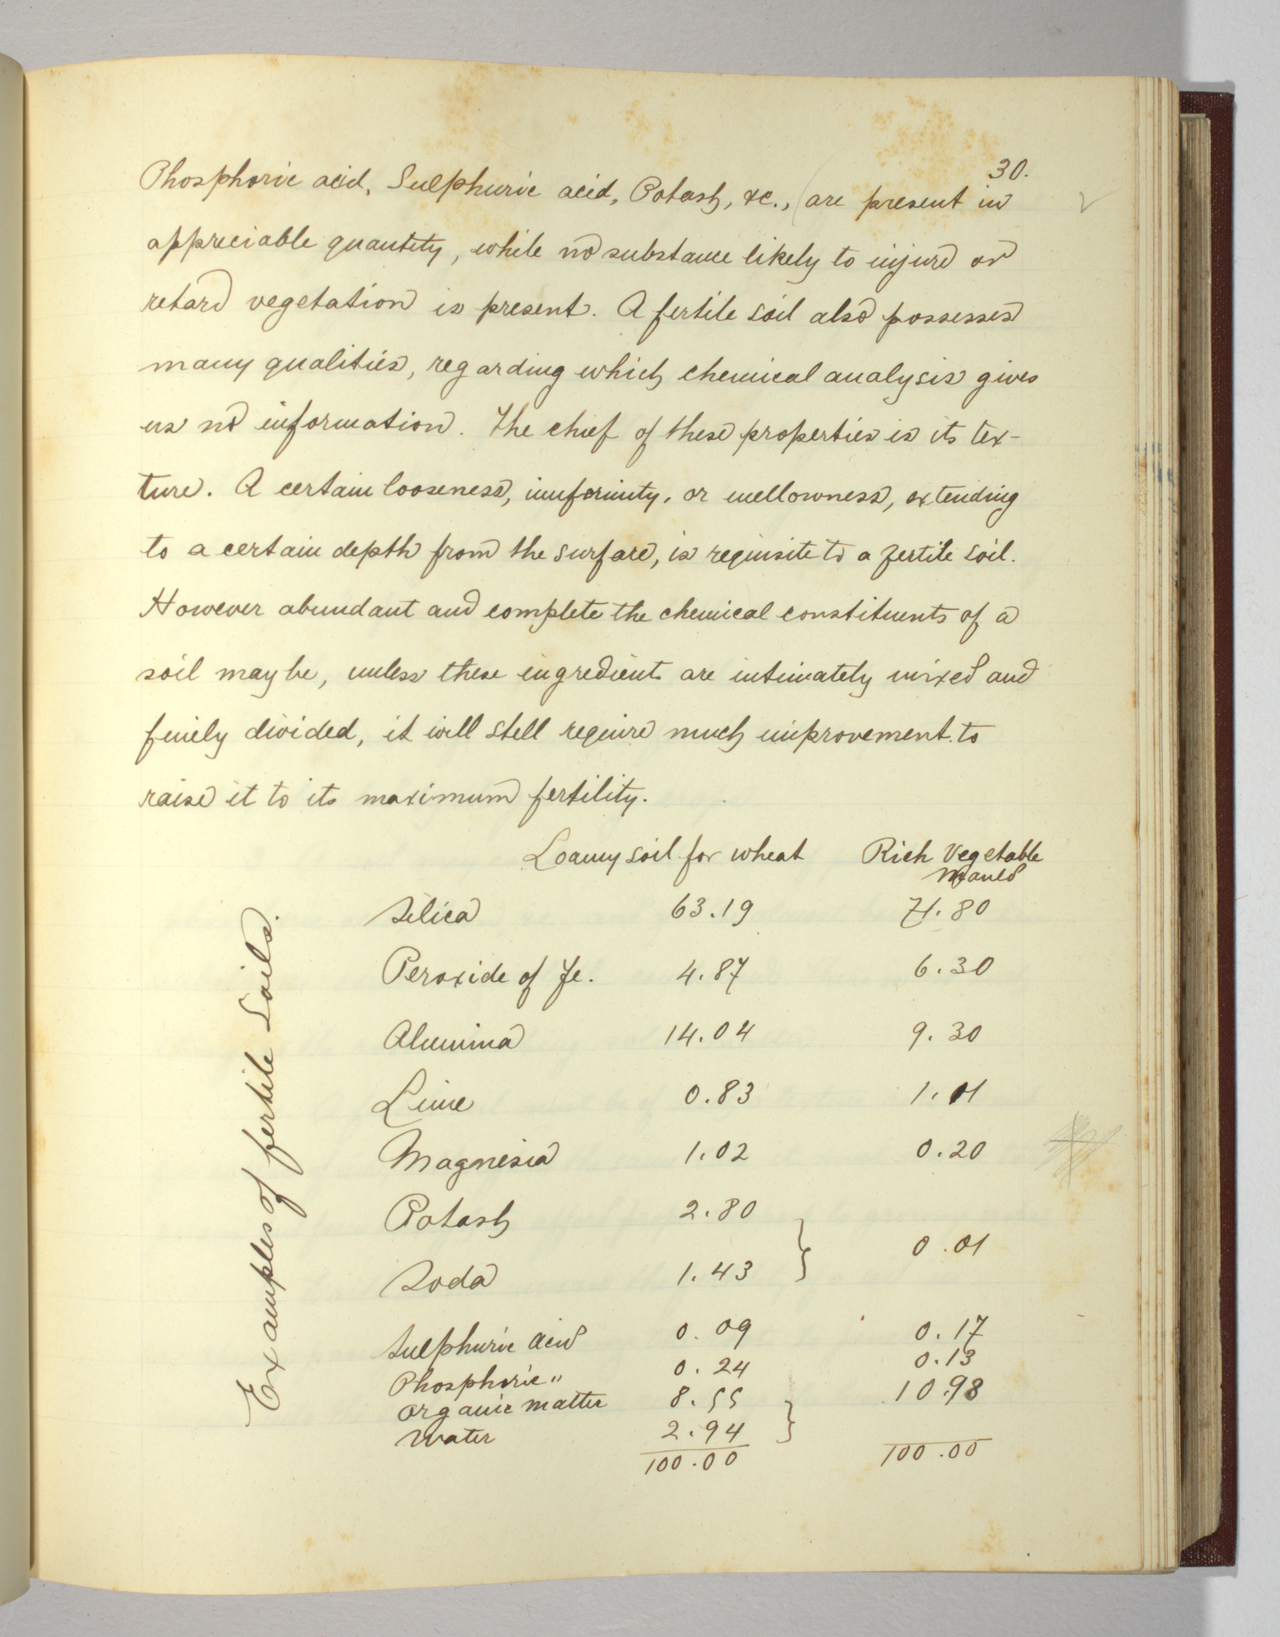 30.
Phosphoric acid, Sulphuric acid, Potash, &c., (are present in
appreciable quantity, while no substance likely to injure or
retard vegetation is present. A fertile soil also possesses
many qualities, regarding which chemical analysis gives
us no information. The chief of these properties is its tex-
ture. A certain looseness, uniformity, or mellowness, extending
to a certain depth from the surface, is requisite to a fertile soil.
However abundant and complete the chemical constituents of a
soil may be, unless these ingredients are intimately mixed and
finely divided, it will still require much improvement to
raise it to its maximum fertility.
Examples of fertile Soils.
Loamy soil for wheat Rich Vegetable
Mould
Silica 63.19 71.80
Peroxide of Fe. 4.87 6.30
Alumina 14.04 9.30
Lime 0.83 1.01
Magnesia 1.02 0.20
Potash 2.80
} 0.01
Soda 1.43
Sulphuric Acid 0.09 0.17
Phosphoric " 0.24 0.13
Organic matter 8.55 10.98
Water 2.94 }
100.00 100.00